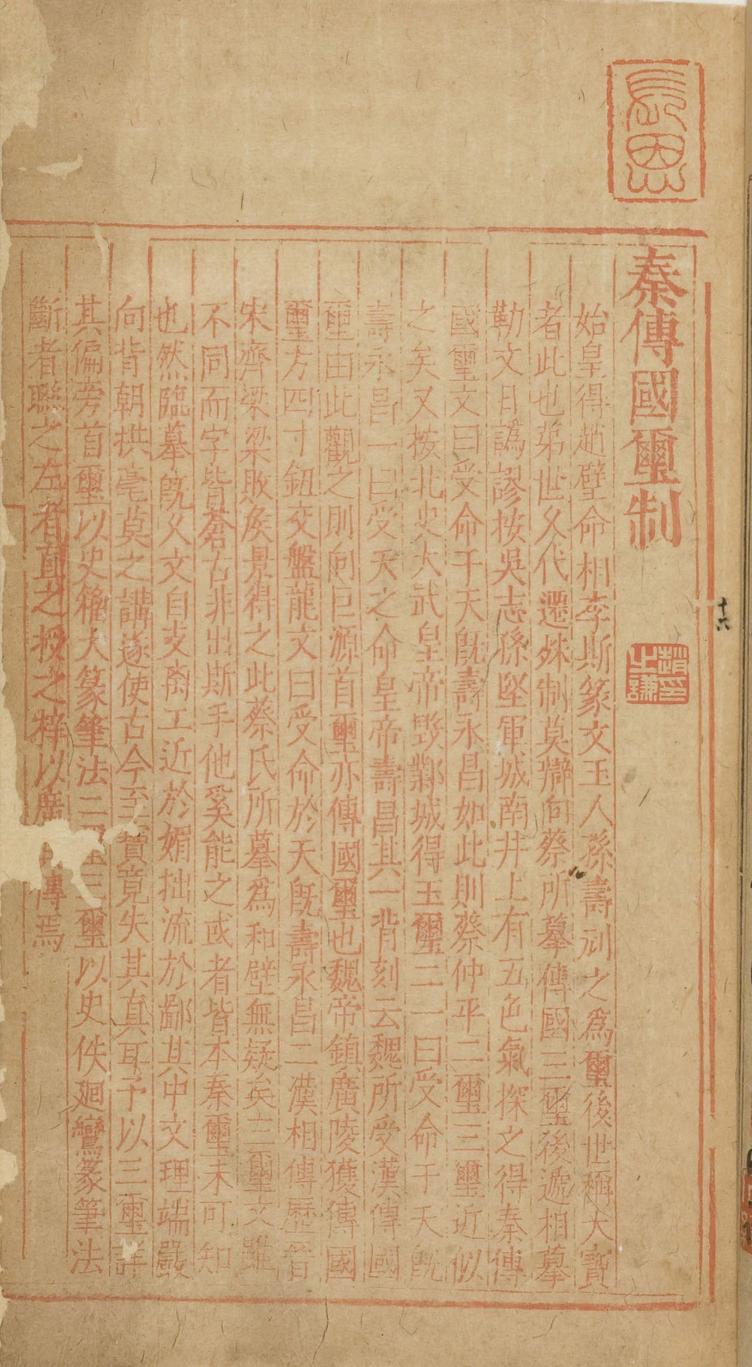 長恩
秦傳國璽制
趙印之謙
始皇得趙璧命相李斯篆文玉人孫壽刻之爲璽後世稱大寶
者此也弟世久代遷殊制莫辯向蔡所摹傳國三璽後遞相摹
勒文日譌謬按吳志孫堅軍城南井上有五色氣探之得秦傳
國璽文曰受命于天旣壽永昌如此則蔡仲平二璽三璽近似
之矣又按北史大武皇帝毀鄴城得玉璽二一曰受命于天旣
壽永昌一曰受天之命皇帝壽昌其一背刻云魏所受漢傳國
璽由此觀之則向巨源首璽亦傳國璽也魏帝鎮廣陵獲傳國
璽方四寸鈕交盤龍文曰受命於天旣壽永昌二漢相傳歷晉
宋齊梁梁敗矦景得之此蔡氏所摹爲和璧無疑矣三璽文雖
不同而字皆蒼古非出斯手他奚能之或者皆本秦璽未可知
也然臨摹旣久文自支离工近於媚拙流於鄙其中文理端嚴
向背朝拱毫莫之講遂使古今至寶竟失其真耳予以三璽詳
其偏旁首璽以史籀大篆筆法二璽三璽以史佚廻鸞篆筆法
斷者聯之左者直之授之梓以廣傳焉
十六